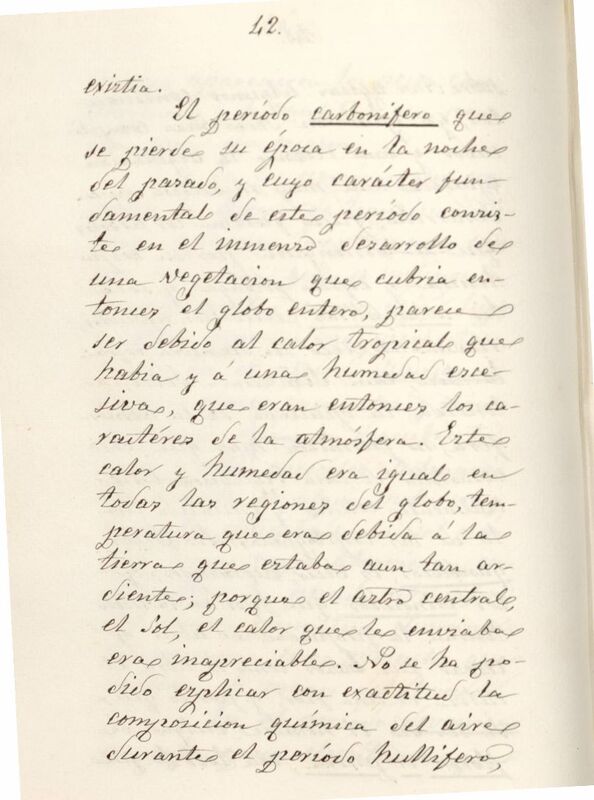 42.
existia.
El período carbonífero que
se pierde su época en la noche
del pasado, y cuyo carácter fun-
damental de este período consis-
te en el inmenso desarrollo de
una vegetacion que cubria en-
tonces el globo entero, parece
ser debido al calor tropical que
habia y á una humedad esce-
siva, que eran entonces los ca-
ractéres de la atmósfera. Este
calor y humedad era igual en
todas las regiones del globo, tem-
peratura que era debida á la
tierra que estaba aun tan ar-
diente; porque el astro central,
el Sol, el calor que le enviaba
era inapreciable. No se ha po-
dido esplicar con exactitud la
composicion química del aire
durante el período hullífero,